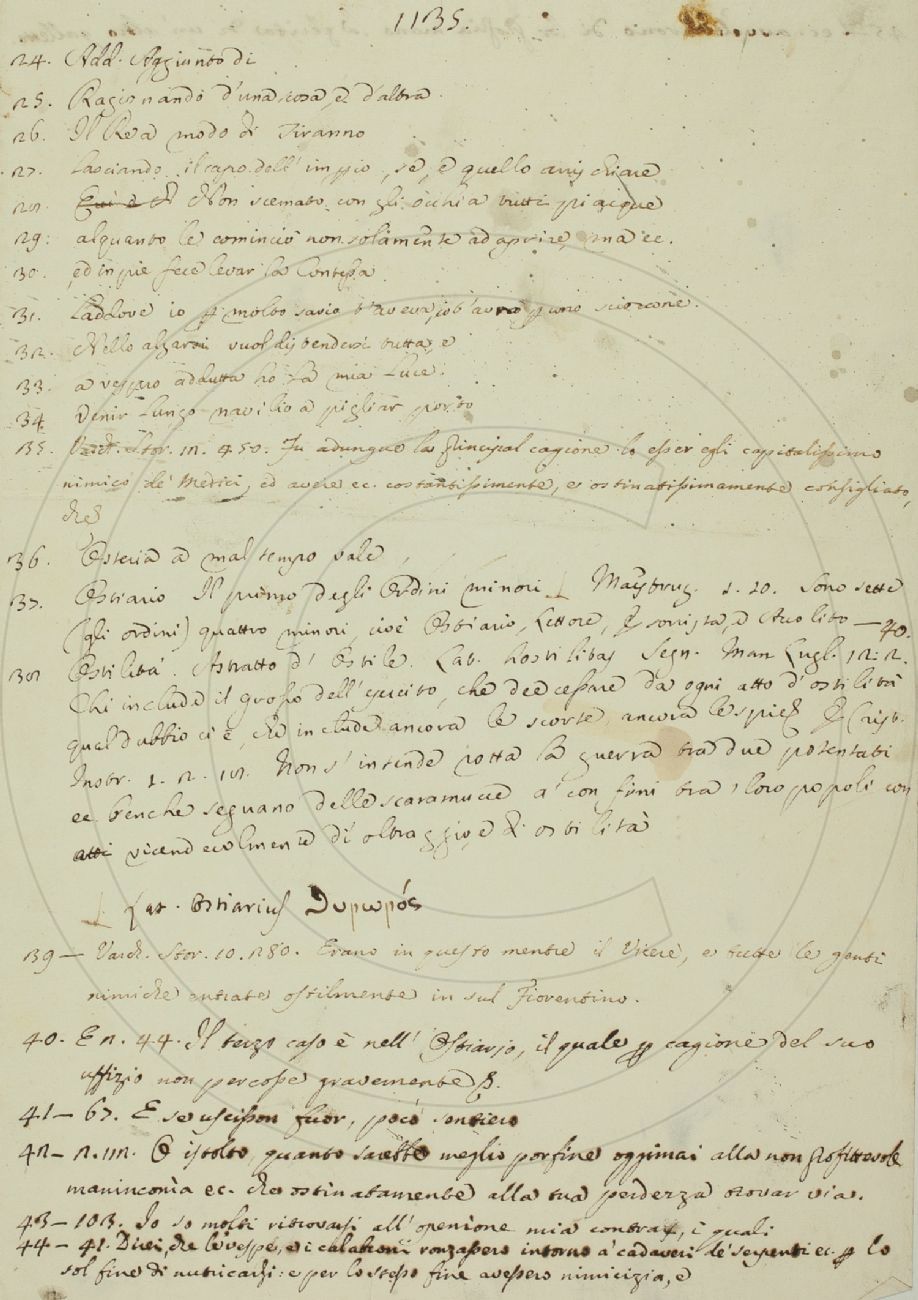 1135.
24. Add. Aggiunto di
25. Ragionando d'una cosa, e d'altra
26. Il Re a modo di Tiranno
27. Lasciando il capo dell' empio, se, e quello
28. Non scemato con gli occhi a tutti piacque
29. alquanto le cominciò non solamente ad aprire, ma ec.
30. ed in piè fece levar la Contessa
31. Laddove io p molto savio t'aveva, io t'avrò p uno scioccone.
32. Nello alzarsi vuol distendersi tutta, e
33. a vespro addutta ho la mia Luce.
34 Venir lungo navilio a pigliar porto
35. Varch. Stor. 12. 450. Fu adunque la principal cagione lo esser egli capitalissimo
nimico de' Medici, ed avere ec. costantissimente, e ostinatissimamente consigliato,
che
36. Osteria a mal tempo vale
37. Ostiario Il primo degli Ordini minori Maestruz. 1. 20. Sono sette
(gli ordini) quattro minori, cioè Ostiario, Lettore, Esorcista, e Acolito — 40.
38 Ostilità. Astratto d' Ostile. Lat. hostilitas Segn. Mann Lugl. 12: 2.
Chi include il grosso dell' esercito, che dee cessare da ogni atto d'ostilità
qual dubbio ci è, che include ancora le scorte, ancora le spie?
1. 2. 12. Non s'intende rotta la guerra tra due potentati
ec benche seguano delle scaramucce a' confini tra i loro popoli con
atti vicendevolmente di oltraggio, e di ostilità
Lat. Ostiarius Θυρωρός
39 — Varch. Stor. 10. 280. Erano in questo mentre il Vicerè, e tutte le genti
nimiche entrate ostilmente in sul Fiorentino.
40. E 2. 44. Il terzo caso è nell' Ostiario, il quale p cagione del suo
uffizio non percosse gravemente
41 — 67. E se uscisson fuor, poco sentiero
42 — 2. 112. O istolto, quanto sarebbe meglio por fine oggimai alla non profittevole
maninconìa ec. che ostinatamente alla tua perdezza trovar via.
43 — 103. Io so molti ritrovarsi all' openione mia contra, i quali
44 — 41. Direi, che le vespe, e i calabroni ronzassero intorno a' cadaveri de' serpenti ec. p lo
sol fine di nutricarsi: e per lo stesso fine avessero nimicizia, e